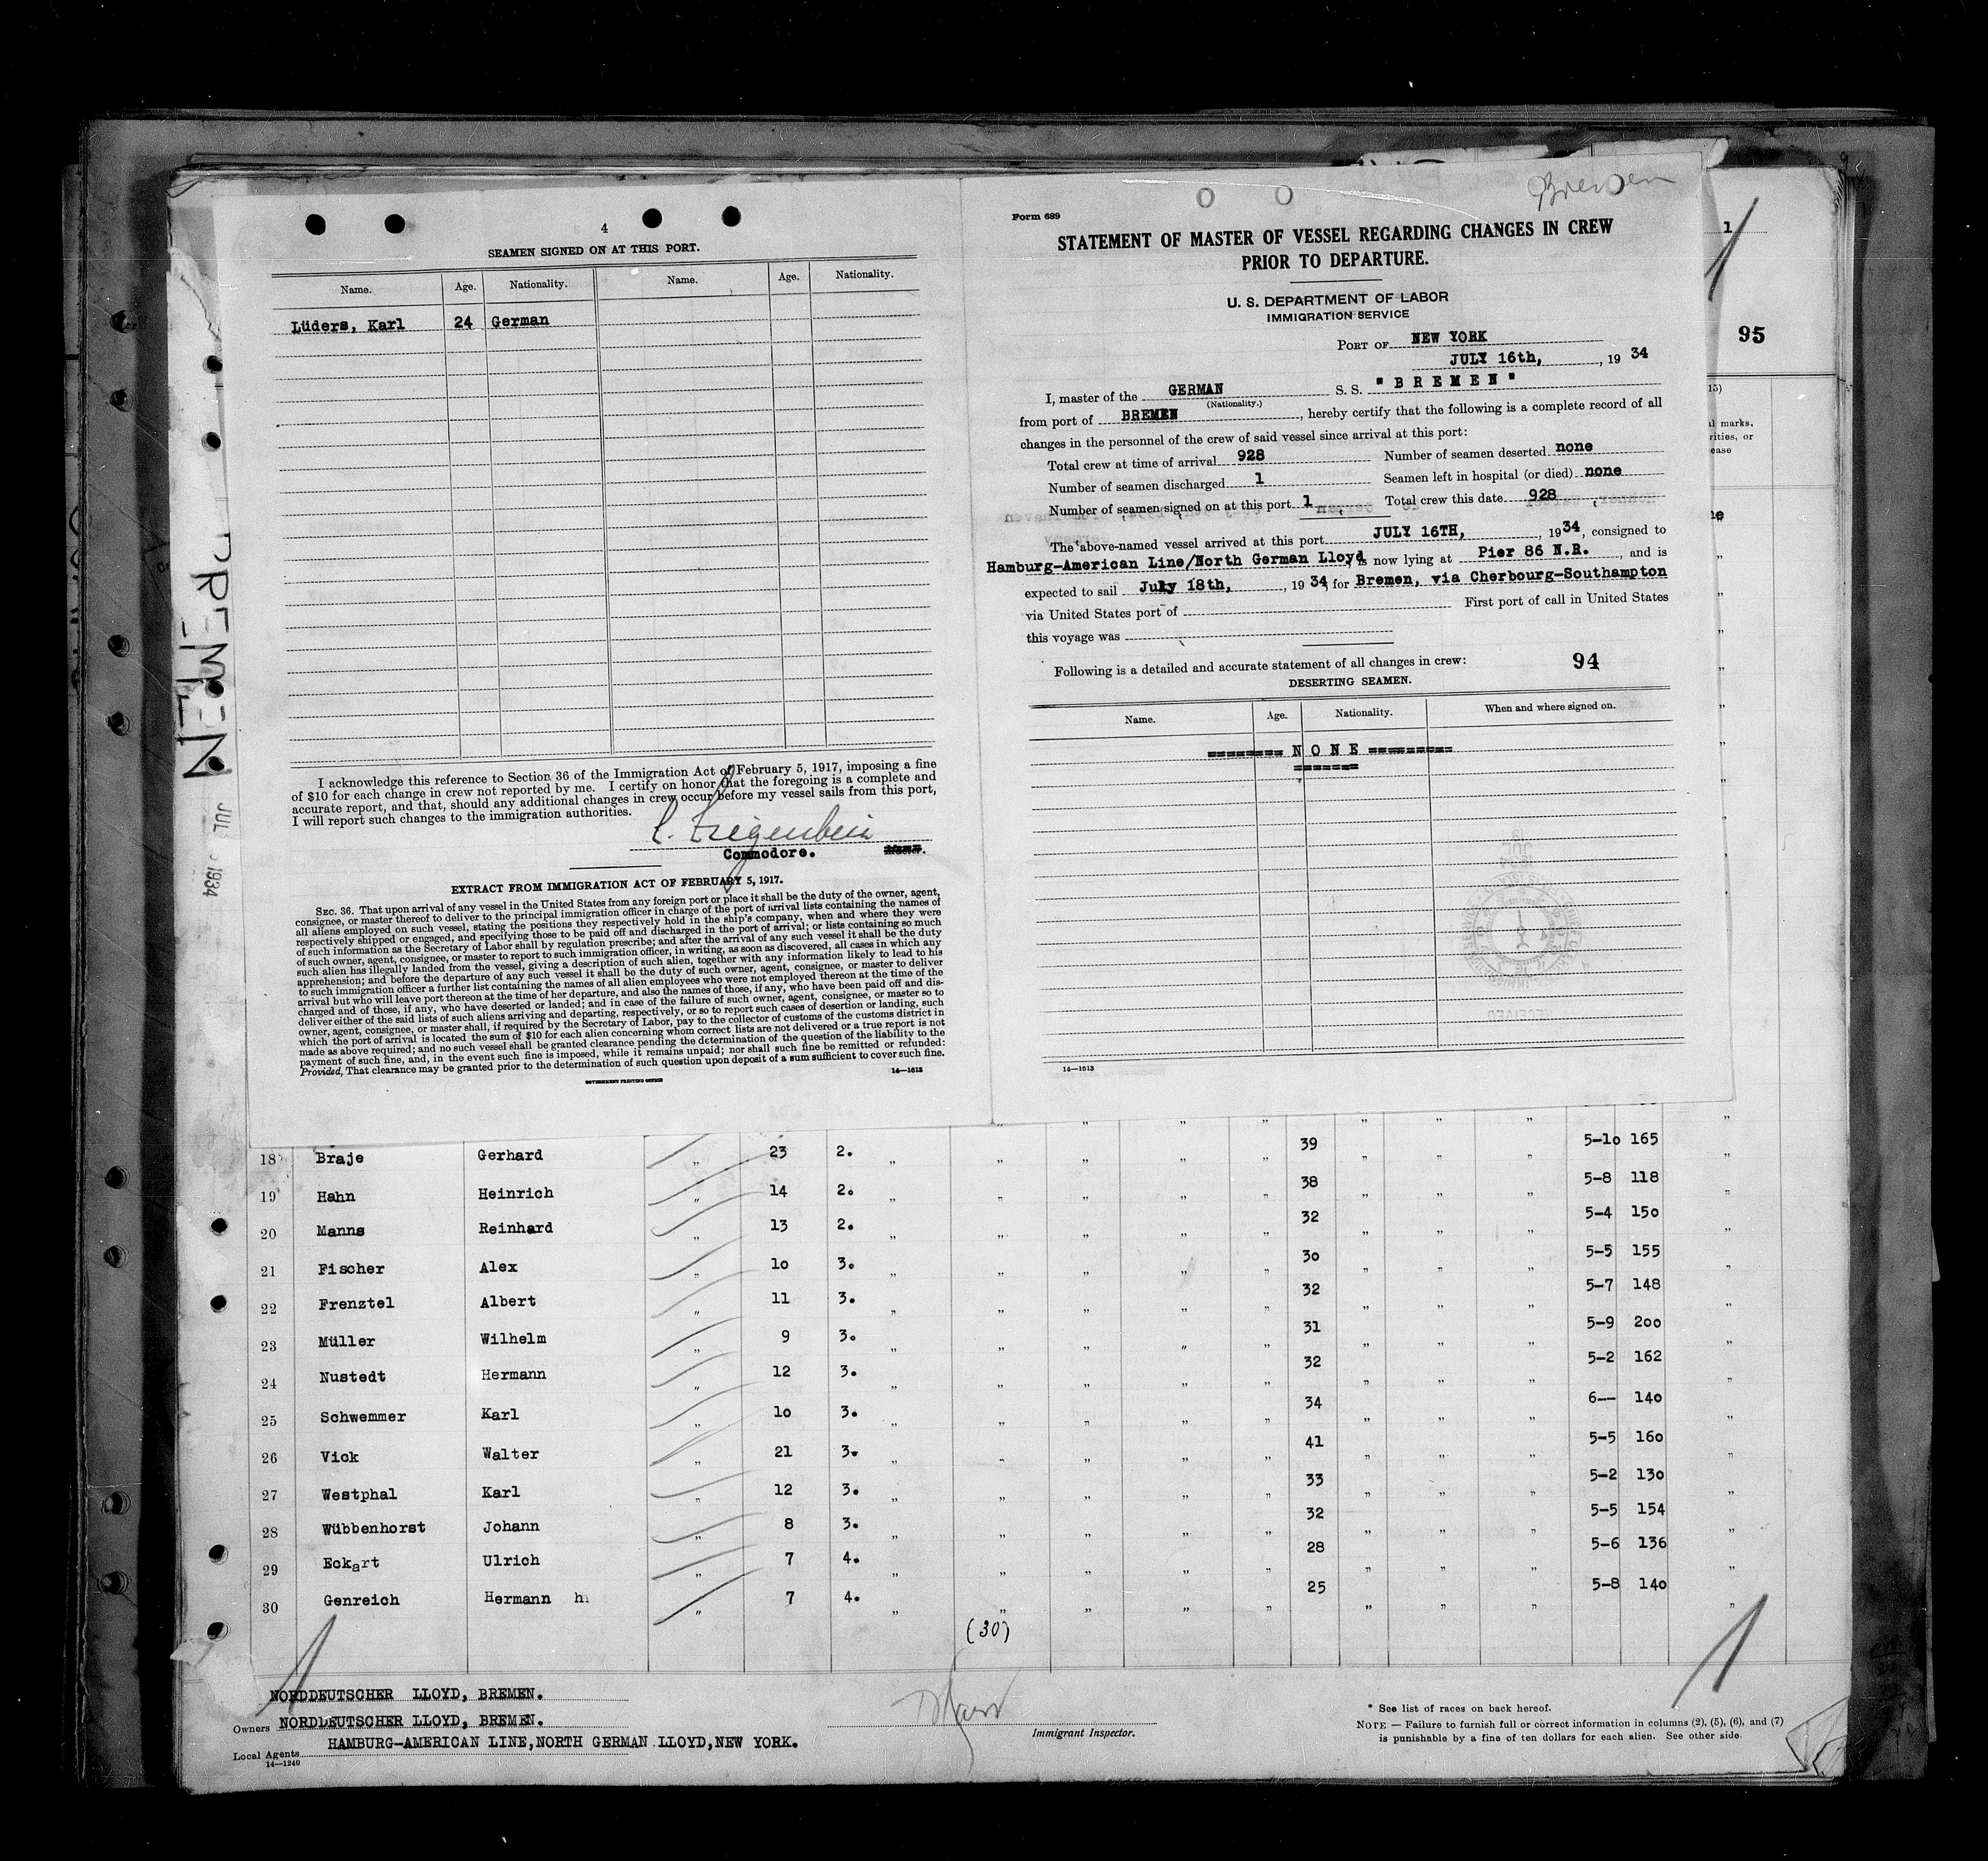 4
SEAMEN SIGNED ON AT THIS PORT.
Name. Age. Nationality. Name. Age. Nationality.
Lüders, Karl 24 German
I acknowledge this reference to Section 36 of the Immigration Act of February 5, 1917, imposing a fine
of $10 for each change in crew not reported by me. I certify on honor that the foregoing is a complete and
accurate report, and that, should any additional changes in crew occur before my vessel sails from this port,
I will report such changes to the immigration authorities.
Commodore.
EXTRACT FROM IMMIGRATION ACT OF FEBRUARY 5, 1917.
SEC. 36. That upon arrival of any vessel in the United States from any foreign port or place it shall be the duty of the owner, agent,
consignee, or master thereof to deliver to the principal immigration officer in charge of the port of arrival lists containing the names of
all aliens employed on such vessel, stating the positions they respectively hold in the ship's company, when and where they were
respectively shipped or engaged, and specifying those to be paid off and discharged in the port of arrival; or lists containing so much
of such information as the Secretary of Labor shall by regulation prescribe; and after the arrival of any such vessel it shall be the duty
of such owner, agent, consignee, or master to report to such immigration officer, in writing, as soon as discovered, all cases in which any
such alien has illegally landed from the vessel, giving a description of such alien, together with any information likely to lead to his
apprehension; and before the departure of any such vessel it shall be the duty of such owner, agent, consignee, or master to deliver
to such immigration officer a further list containing the names of all alien employees who were not employed thereon at the time of the
arrival but who will leave port thereon at the time of her departure, and also the names of those, if any, who have been paid off and dis-
charged and of those, if any, who have deserted or landed; and in case of the failure of such owner, agent, consignee, or master so to
deliver either of the said lists of such aliens arriving and departing, respectively, or so to report such cases of desertion or landing, such
owner, agent, consignee, or master shall, if required by the Secretary of Labor, pay to the collector of customs of the customs district in
which the port of arrival is located the sum of $10 for each alien concerning whom correct lists are not delivered or a true report is not
made as above required; and no such vessel shall be granted clearance pending the determination of the question of the liability to the
payment of such fine, and, in the event such fine is imposed, while it remains unpaid; nor shall such fine be remitted or refunded:
Provided, That clearance may be granted prior to the determination of such question upon deposit of a sum sufficient to cover such fine.
GOVERNMENT PRINTING OFFICE 14—1613
BREMEN
JUL 1934
Bremen
Form 689
STATEMENT OF MASTER OF VESSEL REGARDING CHANGES IN CREW
PRIOR TO DEPARTURE.
U. S. DEPARTMENT OF LABOR
IMMIGRATION SERVICE
PORT OF NEW YORK
JULY 16th, , 19 34
I, master of the GERMAN S. S. "BREMEN"
(Nationality.)
from port of BREMEN , hereby certify that the following is a complete record of all
changes in the personnel of the crew of said vessel since arrival at this port:
Total crew at time of arrival 928 Number of seamen deserted none
Number of seamen discharged 1 Seamen left in hospital (or died) none
Number of seamen signed on at this port 1 Total crew this date 928
The above-named vessel arrived at this port JULY 16TH, , 19 34, consigned to
Hamburg-American Line/North German Lloyd, is now lying at Pier 86 N.R. , and is
expected to sail July 18th, , 19 34, for Bremen, via Cherbourg-Southampton
via United States port of First port of call in United States
this voyage was
Following is a detailed and accurate statement of all changes in crew: 94
DESERTING SEAMEN.
Name. Age. Nationality. When and where signed on.
======== N O N E =========
14—1613
1
95
15)
al marks,
rities, or
ease
18 Braje Gerhard „ 23 2. „ „ „ „ „ 39 „ „ „ 5-10 165 „
19 Hahn Heinrich „ 14 2. „ „ „ „ „ 38 „ „ „ 5-8 118 „
20 Manns Reinhard „ 13 2. „ „ „ „ „ 32 „ „ „ 5-4 150 „
21 Fischer Alex „ 10 3. „ „ „ „ „ 30 „ „ „ 5-5 155 „
22 Frenztel Albert „ 11 3. „ „ „ „ „ 32 „ „ „ 5-7 148 „
23 Müller Wilhelm „ 9 3. „ „ „ „ „ 31 „ „ „ 5-9 200 „
24 Nustedt Hermann „ 12 3. „ „ „ „ „ 32 „ „ „ 5-2 162 „
25 Schwemmer Karl „ 10 3. „ „ „ „ „ 34 „ „ „ 6-- 140 „
26 Vick Walter „ 21 3. „ „ „ „ „ 41 „ „ „ 5-5 160 „
27 Westphal Karl „ 12 3. „ „ „ „ „ 33 „ „ „ 5-2 130 „
28 Wübbenhorst Johann „ 8 3. „ „ „ „ „ 32 „ „ „ 5-5 154 „
29 Eckart Ulrich „ 7 4. „ „ „ „ „ 28 „ „ „ 5-6 136 „
30 Genreich Hermann „ 7 4. „ „ „ „ „ 25 „ „ „ 5-8 140 „
(30)
NORDDEUTSCHER LLOYD, BREMEN.
Owners NORDDEUTSCHER LLOYD, BREMEN.
Local Agents HAMBURG-AMERICAN LINE,NORTH GERMAN LLOYD,NEW YORK.
14—1240
Immigrant Inspector.
* See list of races on back hereof.
NOTE — Failure to furnish full or correct information in columns (2), (5), (6), and (7)
is punishable by a fine of ten dollars for each alien. See other side.